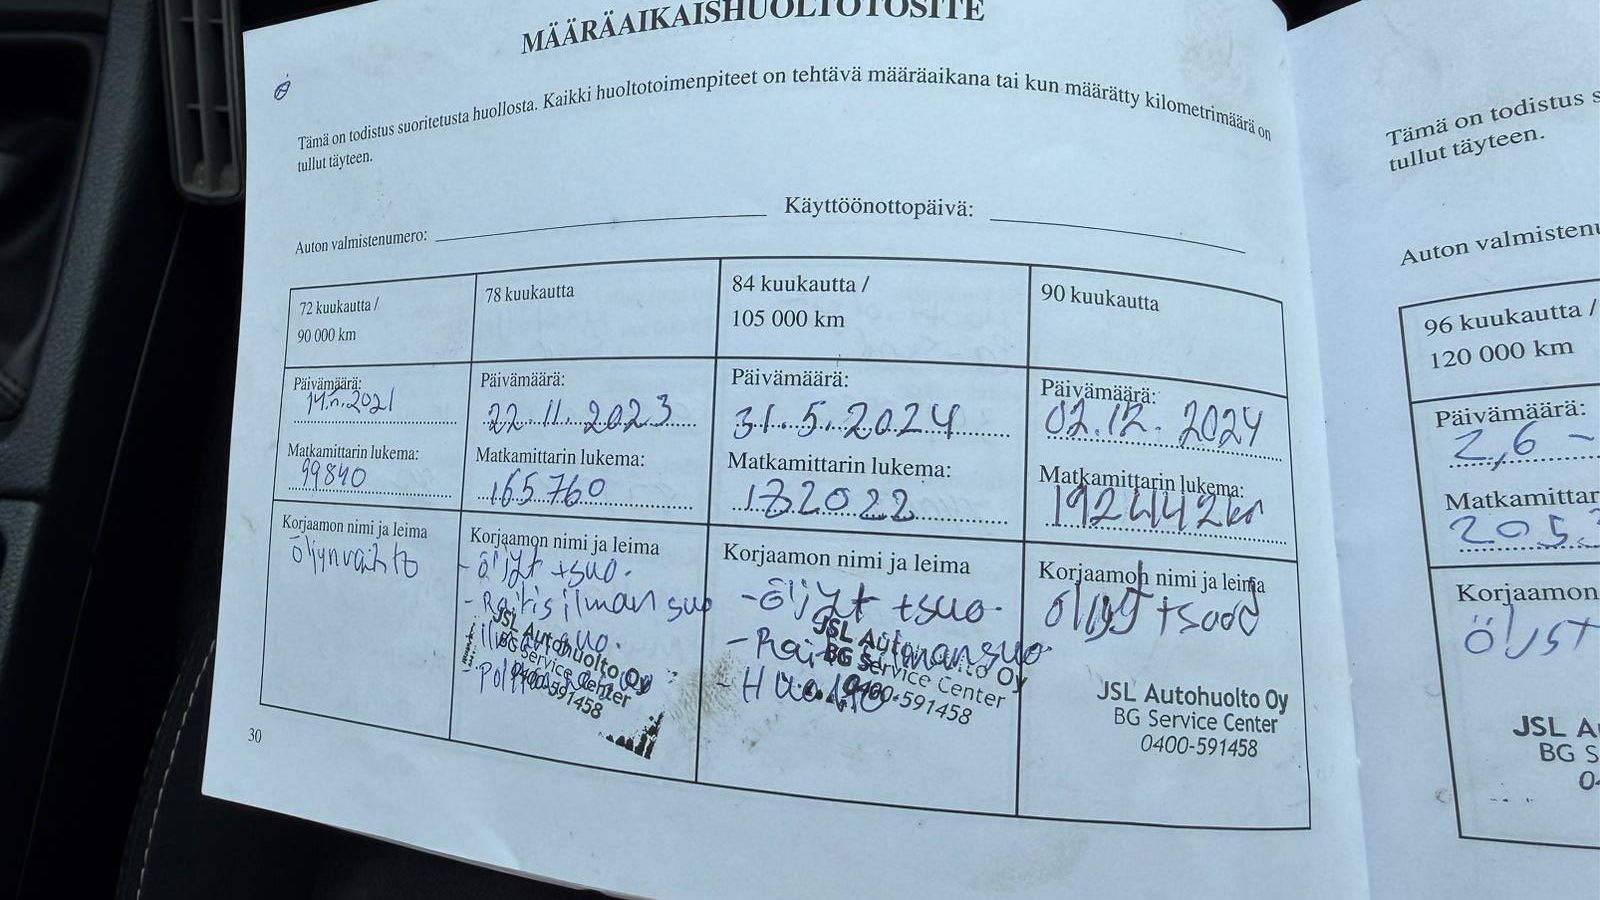 MÄÄRÄAIKAISHUOLTOTOSITE
Tämä on todistus suoritetusta huollosta. Kaikki huoltotoimenpiteet on tehtävä määräaikana tai kun määrätty kilometrimäärä on
tullut täyteen.
Auton valmistenumero:
Käyttöönottopäivä:
72 kuukautta /
90 000 km
Päivämäärä:
Matkamittarin lukema:
99840
Korjaamon nimi ja leima
öljynvaihto
78 kuukautta
Päivämäärä:
22.11.2023
Matkamittarin lukema:
165760
Korjaamon nimi ja leima
- öljyt + suo.
- Raitisilman suo
JSL Autohuolto Oy
BG Service Center
0400-591458
84 kuukautta /
105 000 km
Päivämäärä:
31.5.2024
Matkamittarin lukema:
182022
Korjaamon nimi ja leima
- öljyt + suo.
- Raitisilmansuo.
- Huolto
JSL Autohuolto Oy
BG Service Center
0400-591458
90 kuukautta
Päivämäärä:
02.12.2024
Matkamittarin lukema:
192442km
Korjaamon nimi ja leima
JSL Autohuolto Oy
BG Service Center
0400-591458
30
Tämä on todistus s
tullut täyteen.
Auton valmistenu
96 kuukautta /
120 000 km
Päivämäärä:
2,6 -
Matkamittar
2053
Korjaamon
JSL A
BG S
0